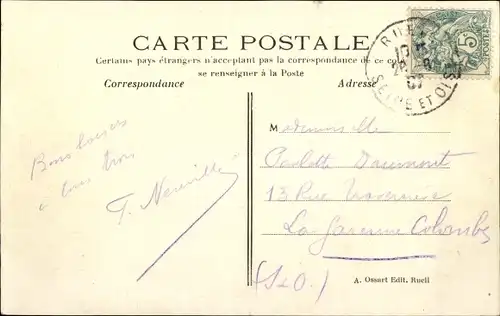 CARTE POSTALE
Certains pays étrangers n'acceptent pas la correspondance de ce côté
se renseigner à la Poste
Correspondance
Adresse
SEINE ET OISE
5
Bons baisers
à tous trois
Mademoiselle
Paulette
13 Rue
La Garenne Colombes
(S&O.)
A. Ossart Edit. Rueil